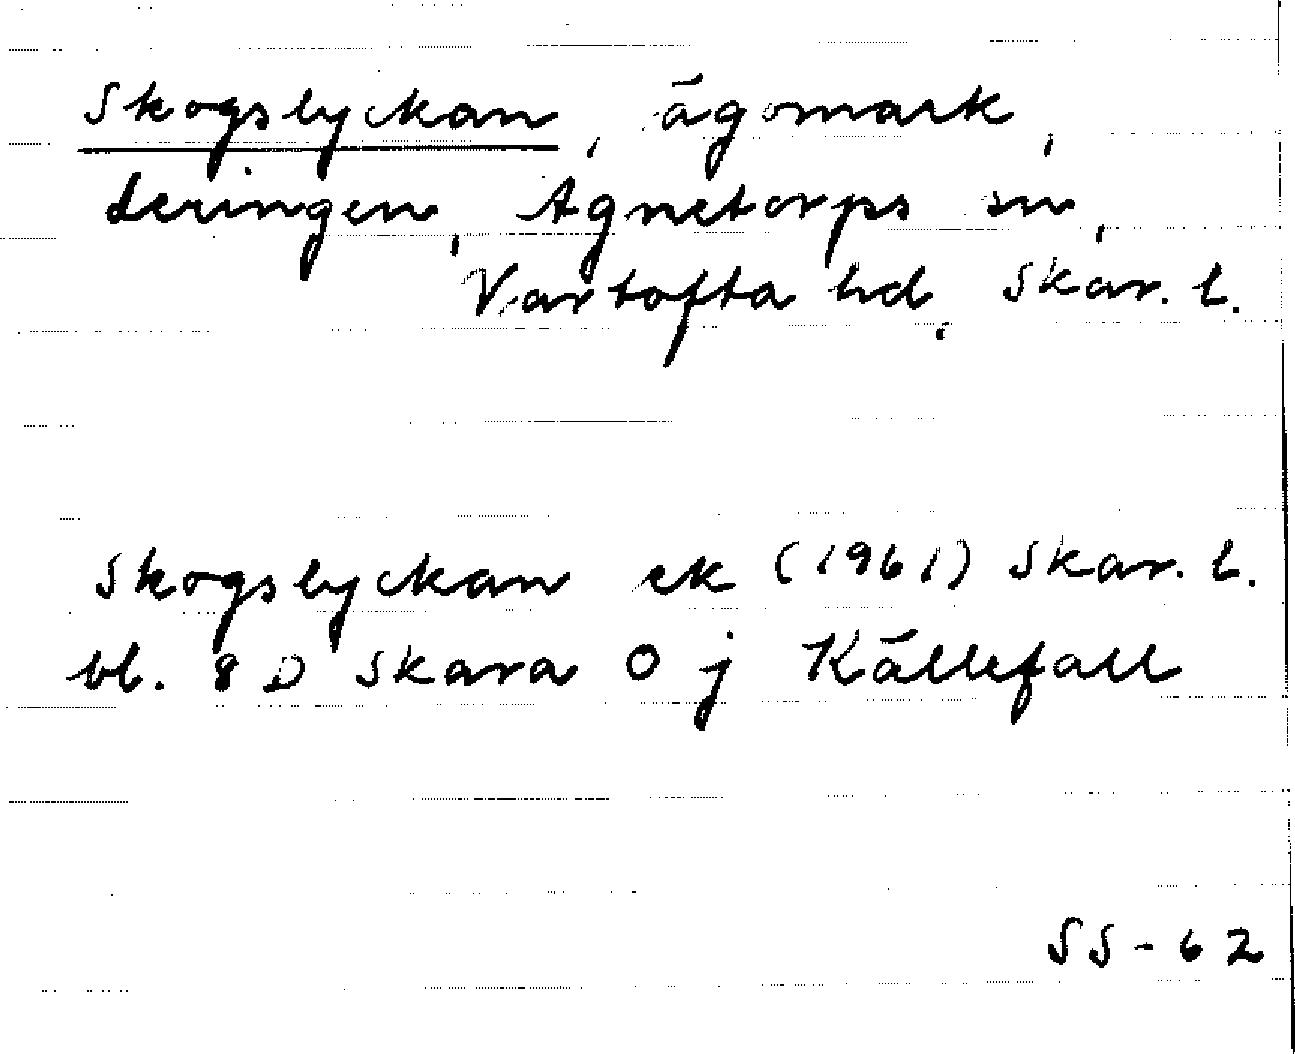 Skogslyckan, ägomark,
Leringen, Agnetorps sn,
Vartofta hd, Skar. l.
Skogslyckan ek (1961) Skar. l.
bl. 8 D Skara 0 j Källefall
SS-62